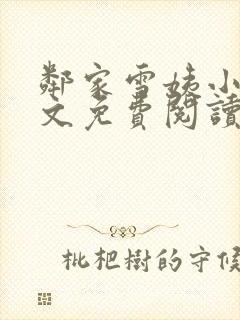 鄰家雪姨小
文免費閱讀
枇杷樹的守候